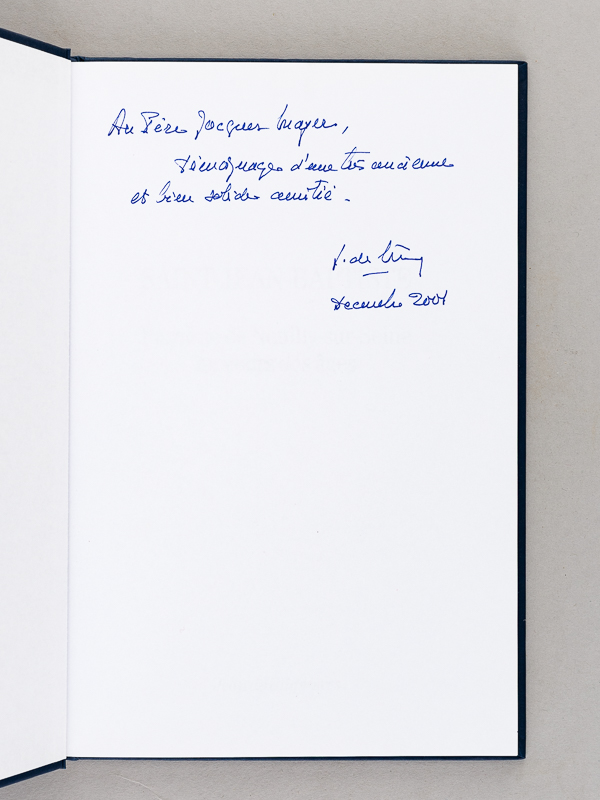 Au Père Jacques Mayer,
témoignage d'une très ancienne
et bien solide amitié.
J. de
Décembre 2001